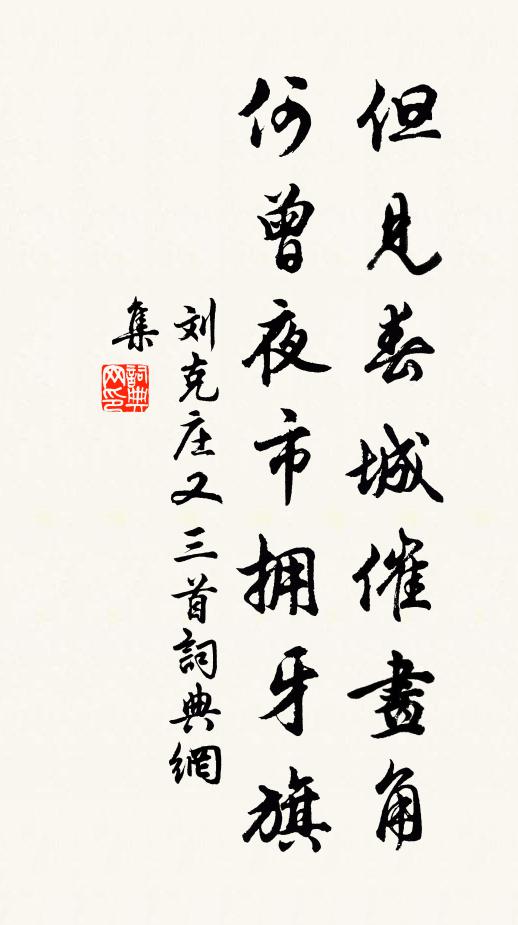 但見春城催畫角
何曾夜市拥牙旗
刘克庄又三首詞典網
集
詞典网印